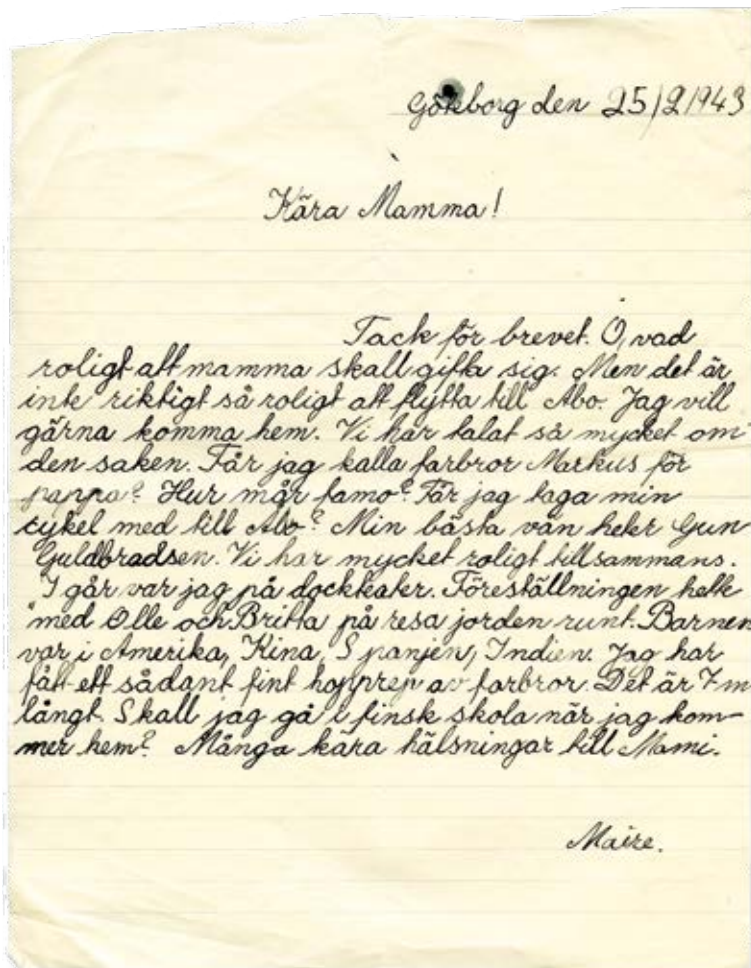 Göteborg den 25/2 1943
Kära Mamma!
Tack för brevet. O, vad
roligt att mamma skall gifta sig. Men det är
inte riktigt så roligt att flytta till Åbo. Jag vill
gärna komma hem. Vi har talat så mycket om
den saken. Får jag kalla farbror Markus för
pappa? Hur mår famo? Får jag taga min
cykel med till Åbo? Min bästa vän heter Gun
Guldbradsen. Vi har mycket roligt tillsammans.
I går var jag på dockteater. Föreställningen hette
"med Olle och Britta på resa jorden runt. Barnen
var i Amerika, Kina, Spanjen, Indien. Jag har
fått ett sådant fint hopprep av farbror. Det är 7 m
långt. Skall jag gå i finsk skola när jag kom-
mer hem? Många kära hälsningar till Mami.
Maire.